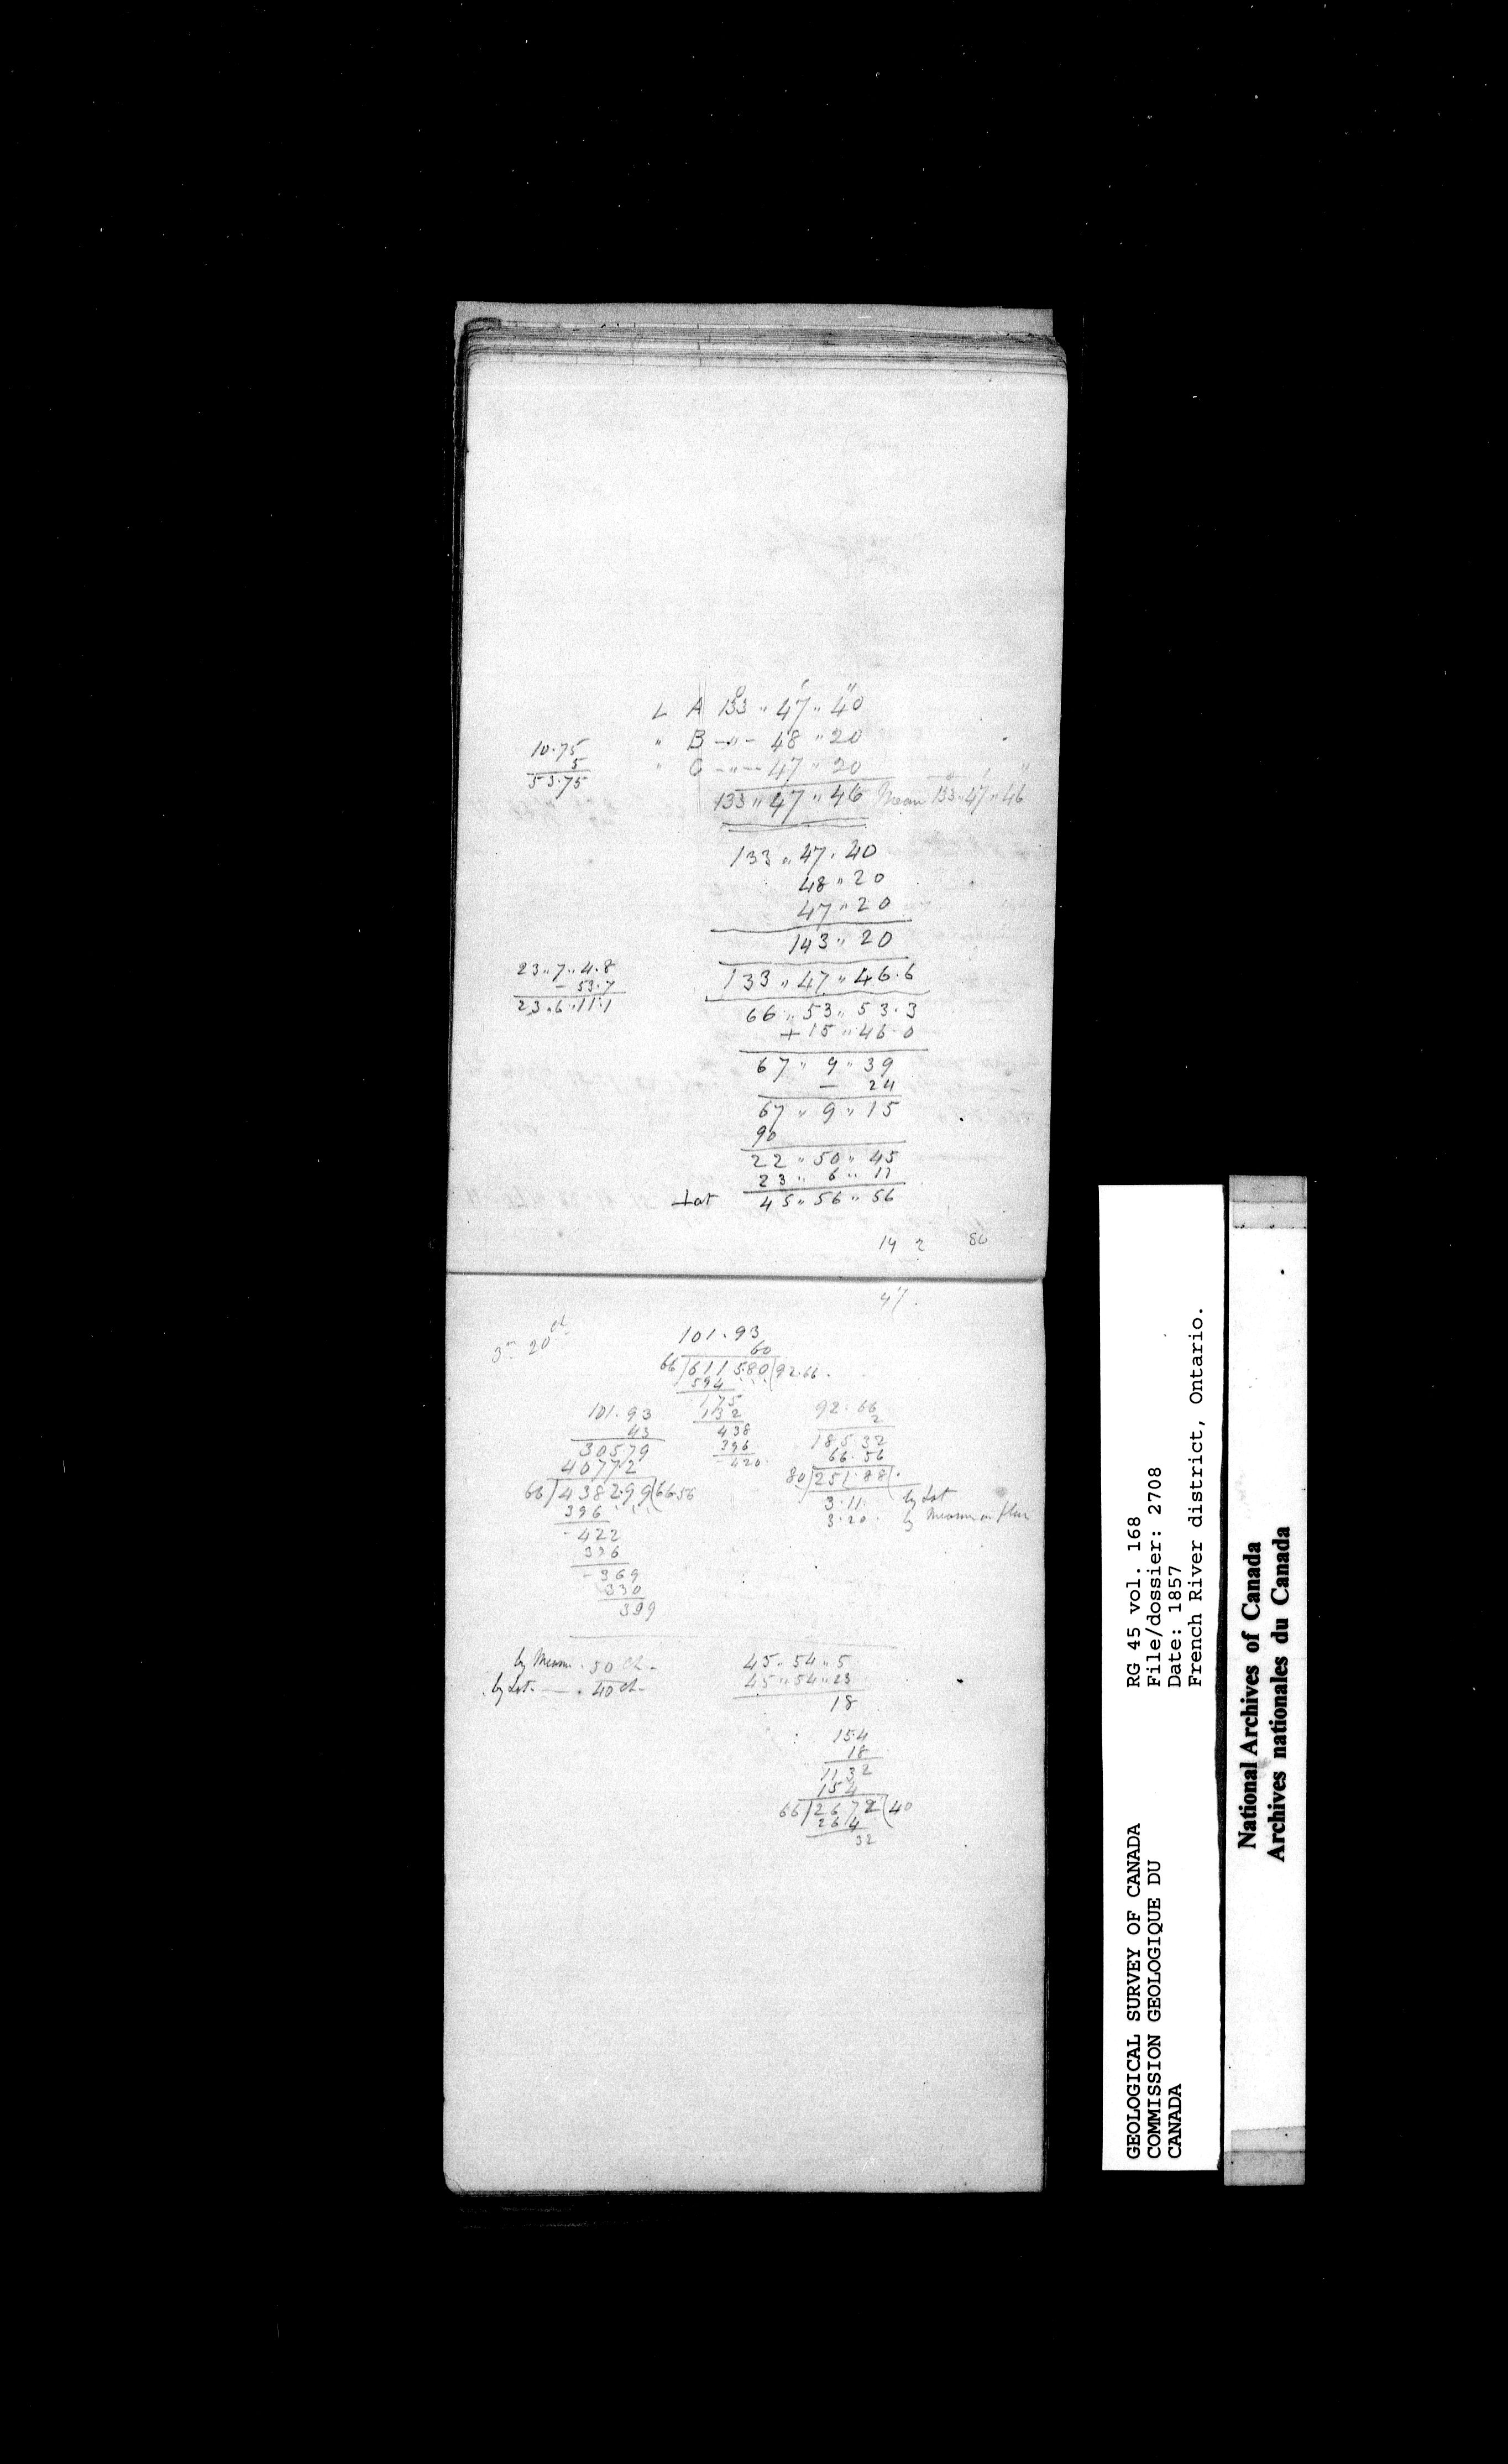 L A 133° „ 47' „ 40"
" B —"— 48 „ 20
" C —"— 47 „ 20
133 „ 47 „ 46 Mean 133° „ 47' „ 46"
10.75
5
53.75
133 „ 47 . 40
48 „ 20
47 „ 20
143 „ 20
133 „ 47 „ 46.6
66 „ 53 „ 53.3
+ 15 „ 46.0
67 „ 9 „ 39
— 24
67 „ 9 „ 15
90
22 „ 50 „ 45
23 „ 6 „ 11
Lat 45 „ 56 „ 56
23 „ 7 „ 4.8
— 53.7
23 „ 6 „ 11.1
14 2 80
47.
3m 20ch
101.93
60
66)611580(92.66.
594
175
132
438
396
420
101.93
43
30579
40772
66)438299(66.56
396
422
396
369
330
399
92.66
2
185.32
66.56
80)251.88(.
3.11. by Lat
3.20. by Measure on plan
by Measm. 50 ch.
by Lat. — . 40 ch.
45 „ 54 „ 5
45 „ 54 „ 23
18
154
18
1132
154
66)2672(40
264
32
GEOLOGICAL SURVEY OF CANADA
COMMISSION GEOLOGIQUE DU
CANADA
RG 45 vol. 168
File/dossier: 2708
Date: 1857
French River district, Ontario.
National Archives of Canada
Archives nationales du Canada